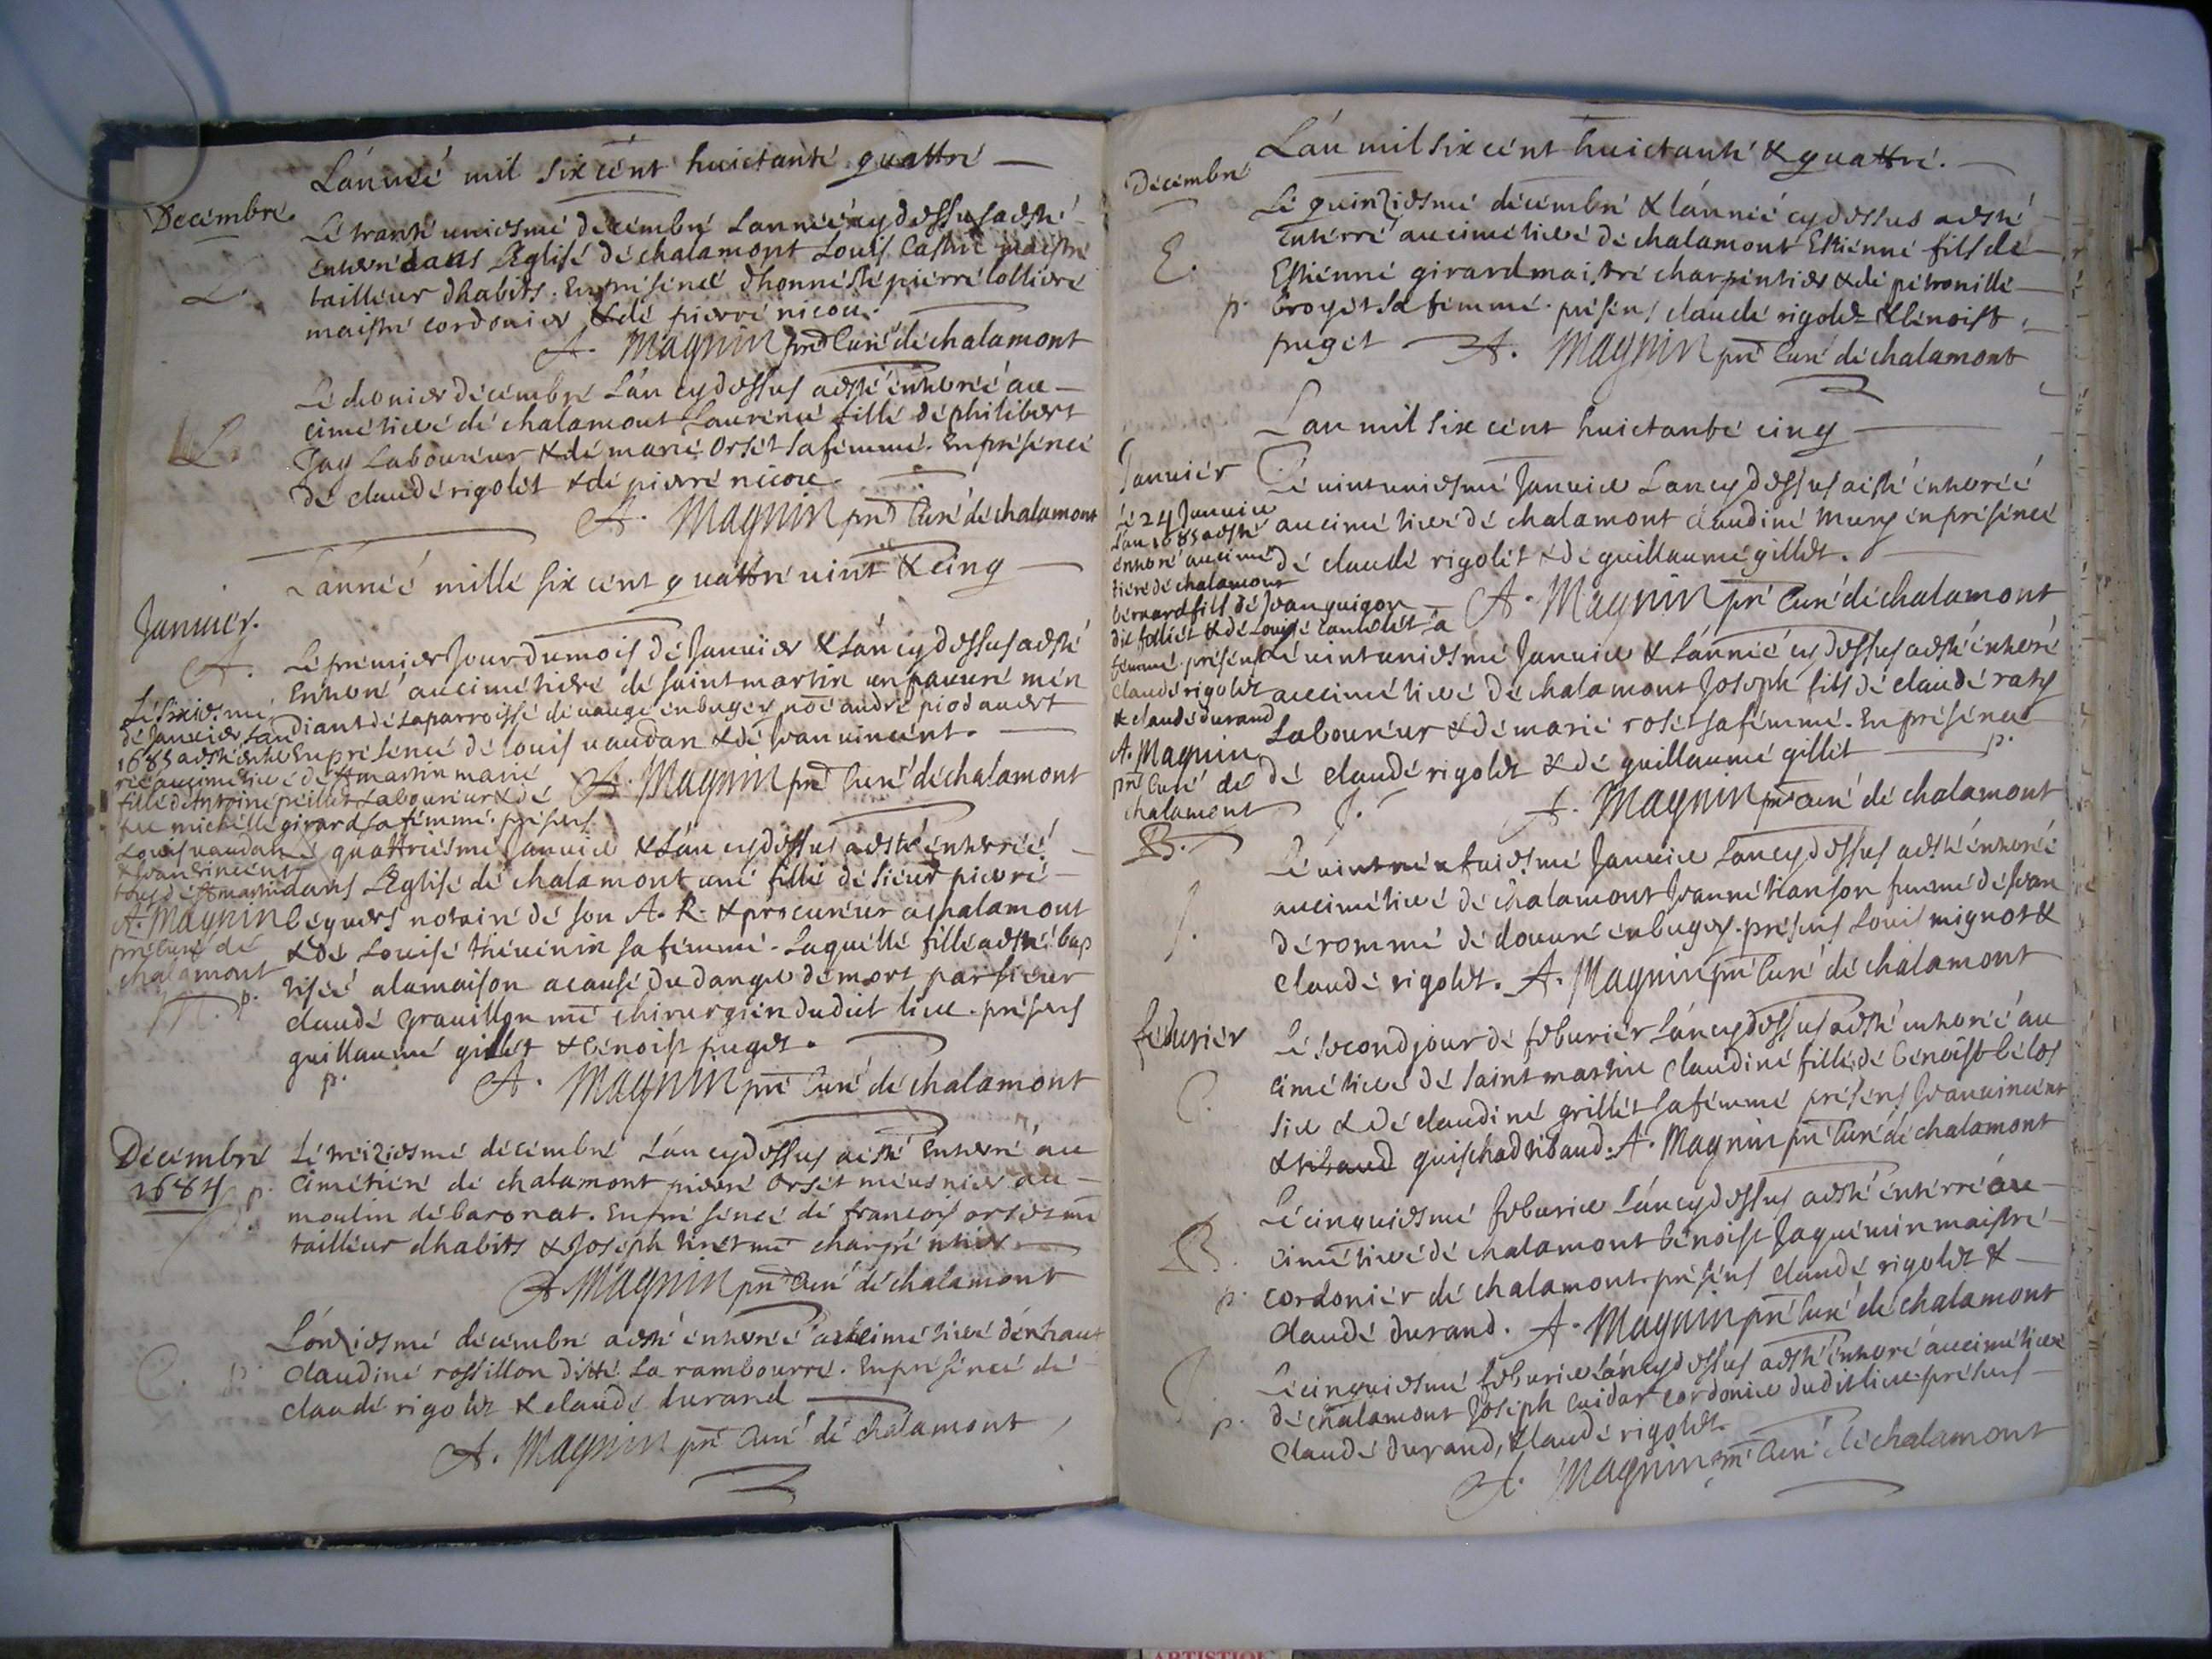 Lánneé mil six cént huictanté quattré
Décémbré
Lé tranté uniesmé décémbré Lanneé cy dessus aesté
enterré dans L'Eglisé dé chalamont Louis Castin maistré
L.
tailléur dhabits. En présencé dhonnesté piérré
maistré cordonier & dé pierré nicou.
A. Magnin pré Curé dé chalamont
Lé dernier décémbré Lán cydessus aesté enterreé au
cimétieré dé chalamont Laurencé fillé dé philibert
L.
Jay Labouréur & dé marié Orsét sa fémmé. En présencé
dé claudé rigolét & dé pierré nicou.
A. Magnin pré Curé dé chalamont
Lanneé millé six cent quattré uint & cinq
Januiér.
A.
Lé premier Jour du mois dé Januier & Lán cydessus aesté
Enterré au cimétieré dé saint martin un pauuré mén
diant dé La parroissé dé uauge en bugey nōé andré piod auert
En présencé dé Louis uaudan & dé Jean uincent.
A. Magnin pré Curé dé chalamont
Lé sixiesmé
dé Januier Lan
1685 aesté enter
reé au cimétieré dé st martin marié
fillé d'Antoiné peillet Labouréur & dé
feu michéllé girard sa fémmé. présens
Louis uaudan
& Jean uincént
tous dé st martin
A. Magnin
pré Curé dé
chalamont
M. p.
Lé quattriesmé Januier & Lán cydessus aesté enterreé
dans L'Eglisé dé chalamont uné fillé dé siéur pierré
béguers notairé dé son A. R. & procuréur a chalamont
& dé Louisé théuénin sa fémmé. Laquéllé fillé aesté bap
tiseé a la maison a causé du danger dé mort par sieur
claudé grauillon mé chirurgién dudict lieu. présens
guillaumé gillét & bénoist puget.
p.
A. Magnin pré Curé dé chalamont
Décémbré
1684
p.
Lé treiziesmé décémbré Lán cydessus aesté Enterré au
cimétieré dé chalamont pierré Orsét méusnier au
moulin dé baronat. En présencé dé francois orset mé
tailléur dhabits & Joséph tirét mé charpéntier
A. Magnin pré Curé dé chalamont
C. p.
Lónziesmé décémbré aesté énterreé au cimétieré dénhaut
claudiné rossillon ditté La rambourré. En présencé dé
claudé rigolet & claudé durand
A. Magnin pré Curé dé chalamont
Lán mil six cént huictanté & quattré.
Décémbré
Lé quinziesmé décémbré & Lánneé cydessus aesté
Entérré au cimétieré dé chalamont Estiénné fils dé
E.
Estiénné girard maistré charpentier & dé pétronillé
p. brogét sa fémmé. présens claudé rigolet & bénoist
pugét
A. Magnin pré Curé dé chalamont
Lan mil six cént huictanté cinq
Januiér
Lé uint uniesmé Januier Lan cydessus aesté énterreé
au cimétieré dé chalamont claudiné mury én présencé
dé claudé rigolét & dé guillaumé gillet.
A. Magnin pré Curé dé chalamont
Lé 24 Januier
Lan 1685 aesté
énterré au cimé
tieré dé chalamont
bérnard fils dé Jean guigon
dit folliét & dé Louisé sa
fémmé. présens
claudé rigolet
& claudé durand
A. Magnin
pré Curé dé
chalamont
B.
Lé uint uniesmé Januier & Lánneé cydessus aesté énterré
au cimétieré dé chalamont Joseph fils dé claudé raty
Labouréur & dé marié rosét sa fémmé. En présencé
dé claudé rigolet & dé guillaumé gillét p.
J.
A. Magnin pré Curé dé chalamont
Lé uint Januier Lan cydessus aesté énterreé
au cimétieré dé chalamont Jeanné tianson fémmé dé Jean
J.
dérommé dé douuré en bugey. présens Louis mignot &
claudé rigolet. A. Magnin pré Curé dé chalamont
féburiér
Lé second jour dé féburiér Lán cydessus aesté énterreé au
cimétieré dé saint martin claudiné fillé dé bénoist bélos
C.
sier & dé claudiné grillét sa fémmé présens Jean uincént
& guischad ribaud. A. Magnin pré Curé dé chalamont
Lé cinquiesmé féburier Lán cydessus aesté éntérré áu
B.
cimétieré dé chalamont bénoist Jaquémin maistré
p. cordoniér dé chalamont. présens claudé rigolet &
claudé durand. A. Magnin pré Curé dé chalamont
J.
Lé cinquiesmé féburier Lán cydessus aesté énterré au cimétieré
p. dé chalamont Joséph Cuidar cordonier dudit lieu. présens
claudé durand, & claudé rigolet.
A. Magnin pré Curé dé chalamont